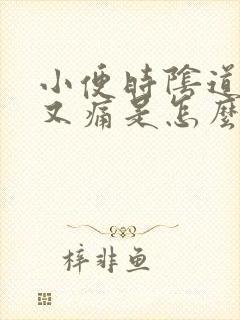 小便時陰道
又痛是怎麼
梓非魚